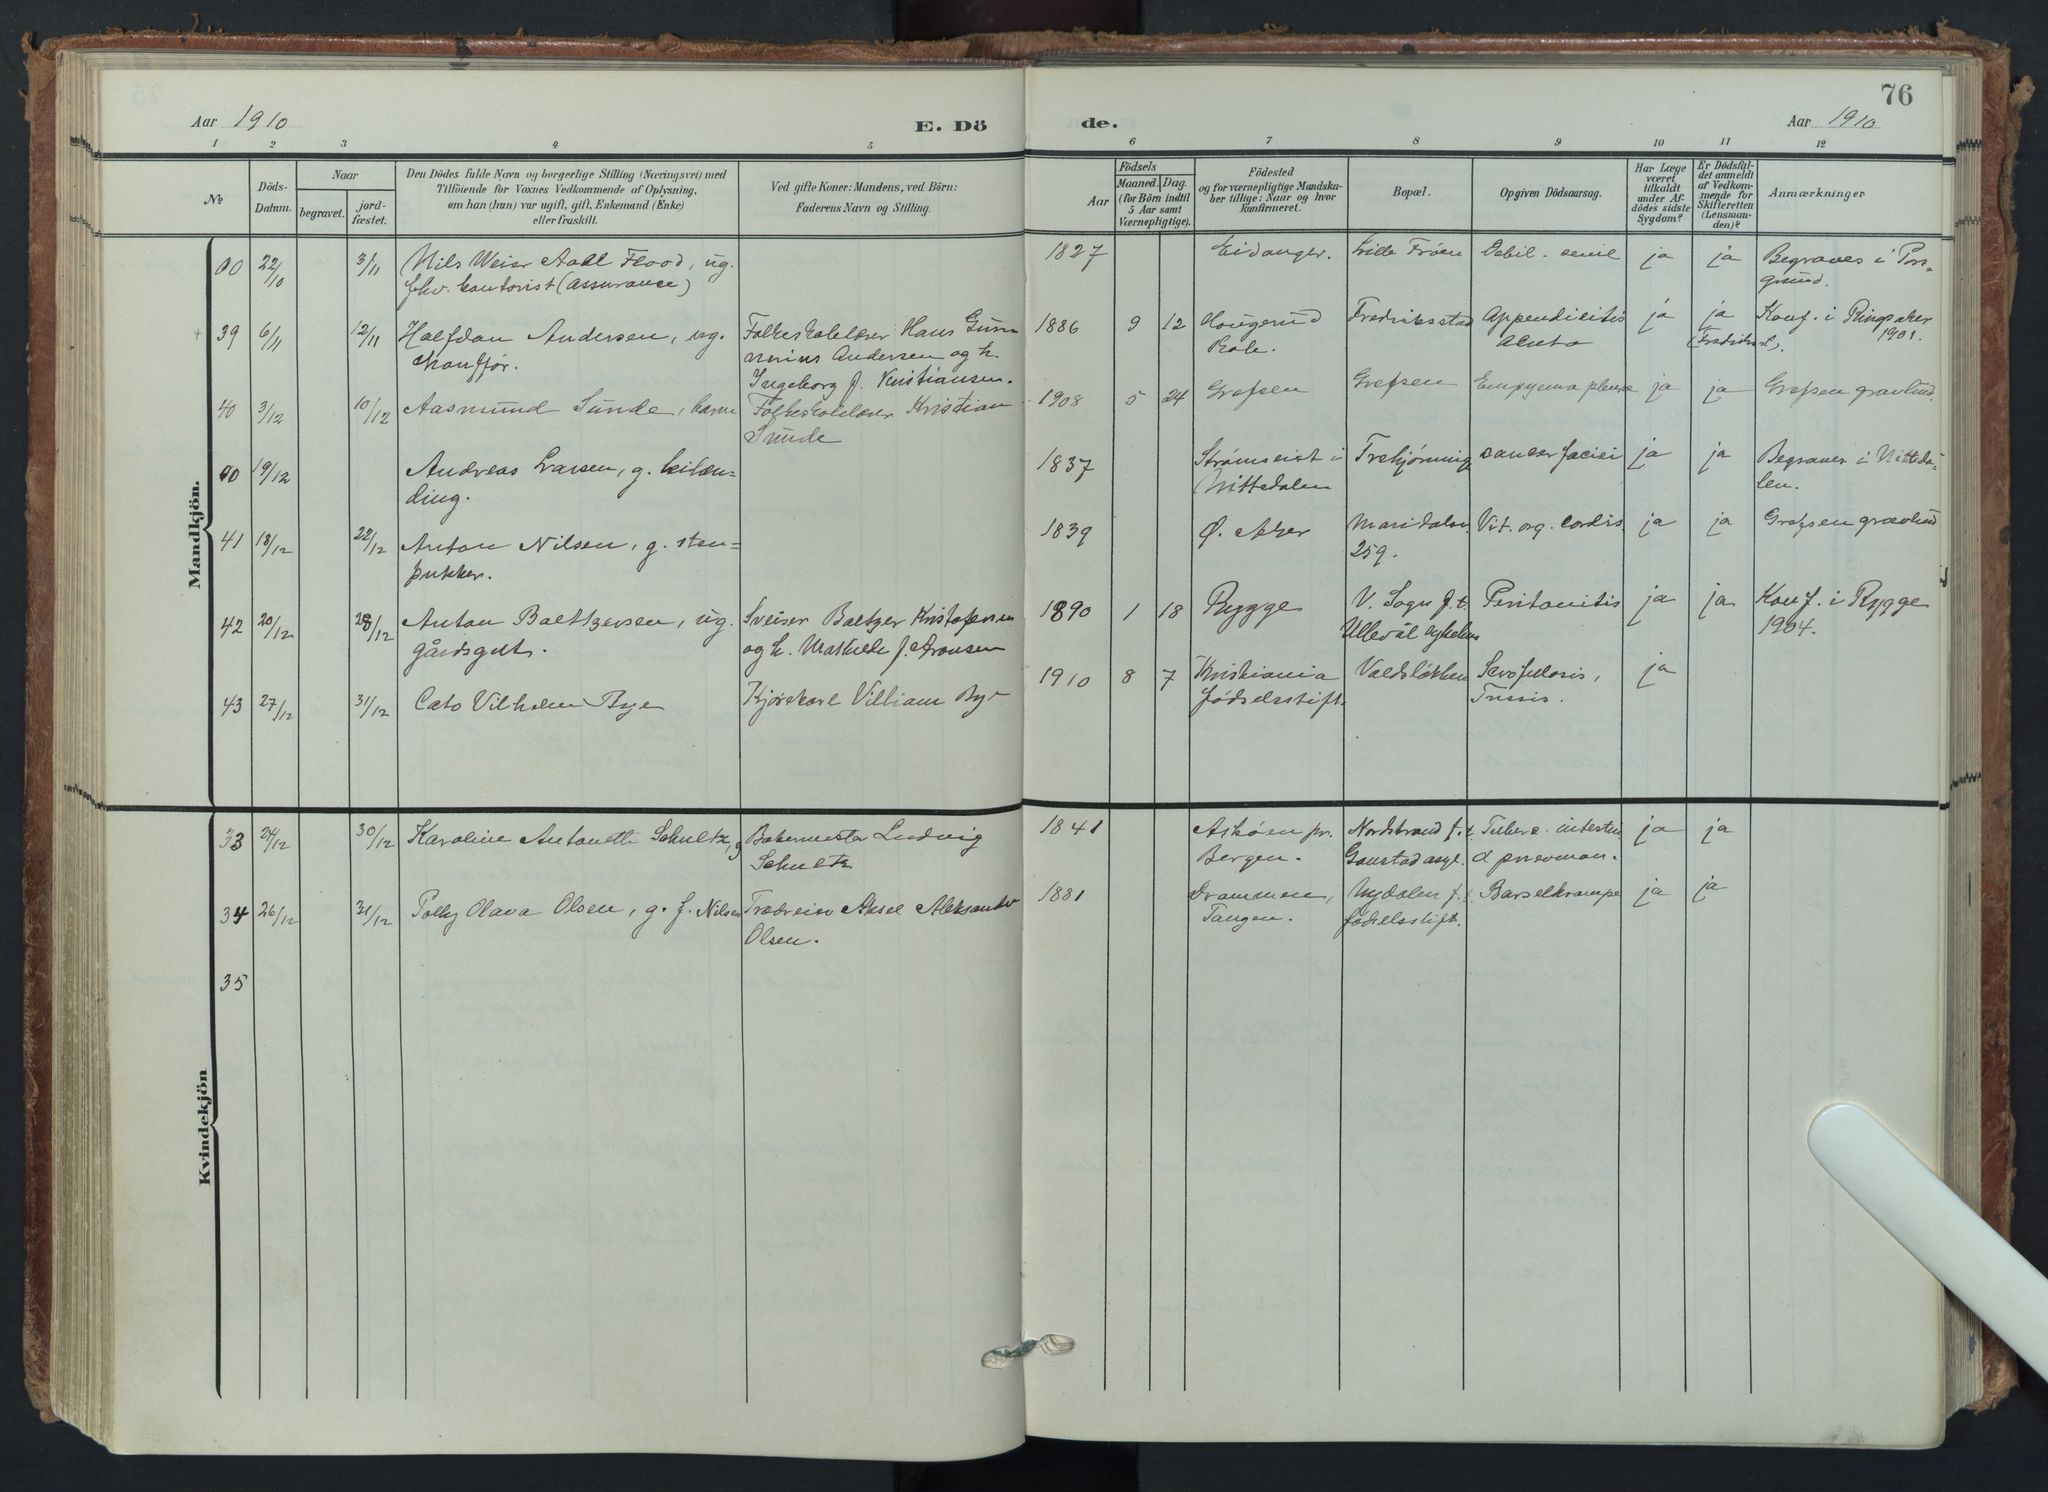 76
Aar 1910 E. Dö de. Aar 1910
1 2 3 4 5 6 7 8 9 10 11 12
№
Döds-Datum.
Naar
begravet. jord-fæstet.
Den Dödes fulde Navn og borgerlige Stilling (Næringsvei) med
Tilföiende for Voxnes Vedkommende af Oplysning,
om han (hun) var ugift, gift, Enkemand (Enke)
eller fraskilt.
Ved gifte Koner: Mandens, ved Börn:
Faderens Navn og Stilling.
Födsels
Aar Maaned. Dag.
(for Börn indtil
5 Aar samt
Værnepligtige).
Födested
og for værnepligtige Mandska-
ber tillige: Naar og hvor
konfirmeret.
Bopæl.
Opgiven Dödsaarsag.
Har Læge
været
tilkaldt
under Af-
dödes sidste
Sygdom?
Er Dödsfal-
det anmeldt
af Vedkom-
mende for
Skifteretten
(Lensman-
den)?
Anmærkninger
Mandkjön.
00 22/10 3/11 Nils Weier Aall Flood, ug. 1827 Eidanger. Lille Frøen Debil. senil ja ja Begraves i Pors-
fhv. kontorist (Assurance) grund.
39 6/11 12/11 Halfdan Andersen, ug. Folkeskolelærer Hans Gun- 1886 9 12 Fredriksstad Appendicitis ja ja Konf. i Ringsaker
chauffør. nerius Andersen og h. Hole. acuta 1901.
Ingeborg f. Kristiansen.
40 3/12 10/12 Aasmund Sunde, barn Folkeskolelærer Kristian 1908 5 24 Grefsen Grefsen Empyema pleuræ ja ja Grefsen gravlund.
Sunde
00 19/12 Andreas Larsen, g. 1837 i cancer faciei ja ja Begraves i Nitteda-
ding. Nittedalen len.
41 18/12 22/12 Anton Nilsen, g. sten- 1839 Ø. Aker Maridalsv. Vit. org. cordis ja ja Grefsen gravlund
pukker. 259.
42 20/12 28/12 Anton Balthzersen, ug. Sveiser Baltzer Kristofersen 1890 1 18 Rygge V. Sogn f.t. Peritonitis ja ja Konf. i Rygge
gårdsgut. og h. Mathilde f. Aronsen Ullevål sykehus 1904.
43 27/12 31/12 Cato Vilhelm Bye Kjørekarl Villiam Bye 1910 8 7 Kristiania Valdsløkken Scrofulosis, ja
fødselsstift. Tussis.
Kvindekjön
33 24/12 30/12 Karoline Antonette Schultz, g Bakermester Ludvig 1841 Askøen pr. Nordstrand f.t. Tuberc. intestin ja ja
Schultz Bergen. Gaustad asyl. & pneumon.
34 26/12 31/12 Polly Olava Olsen, g. f. Nilsen Trædreier Aksel Aleksander 1881 Drammen, Nydalen f.t. Barselkrampe ja ja
Olsen. Tangen. fødselsstift.
35